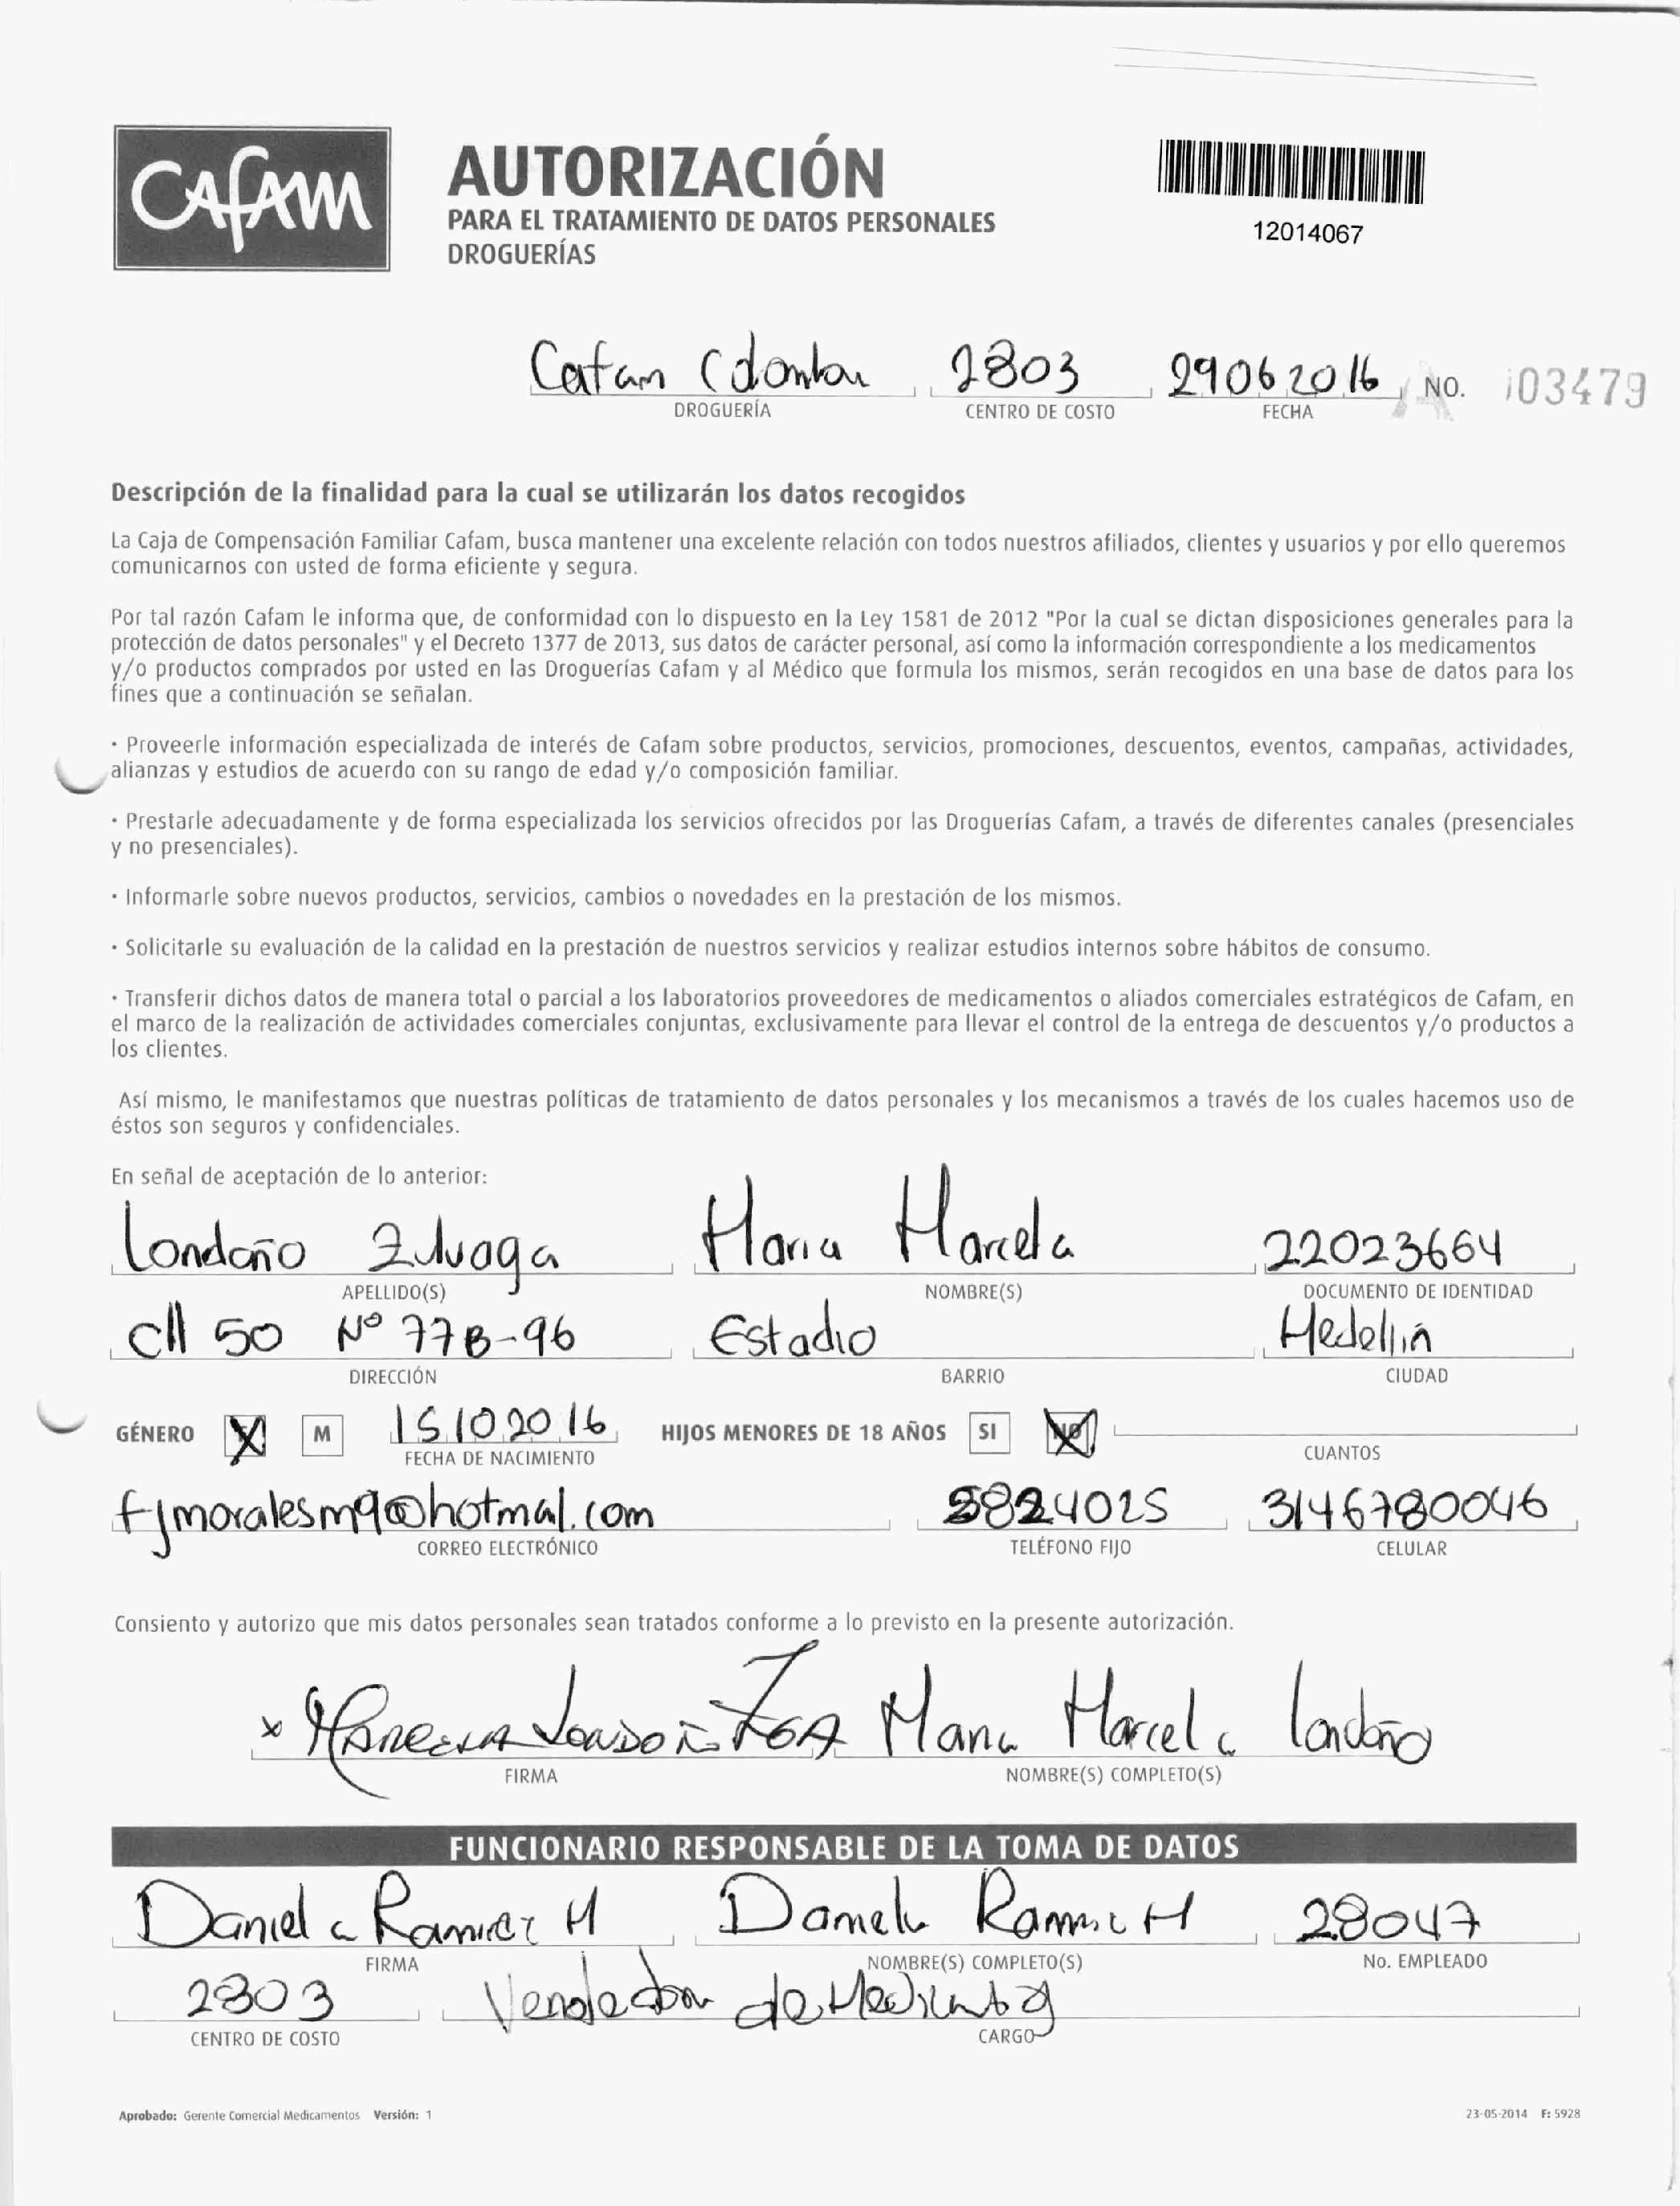 Cafam
AUTORIZACIÓN
PARA EL TRATAMIENTO DE DATOS PERSONALES
DROGUERÍAS
12014067
Cafam Colombia 2803 29062016 A NO. 103479
DROGUERÍA CENTRO DE COSTO FECHA
Descripción de la finalidad para la cual se utilizarán los datos recogidos
La Caja de Compensación Familiar Cafam, busca mantener una excelente relación con todos nuestros afiliados, clientes y usuarios y por ello queremos
comunicarnos con usted de forma eficiente y segura.
Por tal razón Cafam le informa que, de conformidad con lo dispuesto en la Ley 1581 de 2012 "Por la cual se dictan disposiciones generales para la
protección de datos personales" y el Decreto 1377 de 2013, sus datos de carácter personal, así como la información correspondiente a los medicamentos
y/o productos comprados por usted en las Droguerías Cafam y al Médico que formula los mismos, serán recogidos en una base de datos para los
fines que a continuación se señalan.
· Proveerle información especializada de interés de Cafam sobre productos, servicios, promociones, descuentos, eventos, campañas, actividades,
alianzas y estudios de acuerdo con su rango de edad y/o composición familiar.
· Prestarle adecuadamente y de forma especializada los servicios ofrecidos por las Droguerías Cafam, a través de diferentes canales (presenciales
y no presenciales).
· Informarle sobre nuevos productos, servicios, cambios o novedades en la prestación de los mismos.
· Solicitarle su evaluación de la calidad en la prestación de nuestros servicios y realizar estudios internos sobre hábitos de consumo.
· Transferir dichos datos de manera total o parcial a los laboratorios proveedores de medicamentos o aliados comerciales estratégicos de Cafam, en
el marco de la realización de actividades comerciales conjuntas, exclusivamente para llevar el control de la entrega de descuentos y/o productos a
los clientes.
Así mismo, le manifestamos que nuestras políticas de tratamiento de datos personales y los mecanismos a través de los cuales hacemos uso de
éstos son seguros y confidenciales.
En señal de aceptación de lo anterior:
Londoño Zuluaga Maria Marcela 22023664
APELLIDO(S) NOMBRE(S) DOCUMENTO DE IDENTIDAD
Cll 50 Nº 77B-96 Estadio Medellin
DIRECCIÓN BARRIO CIUDAD
GÉNERO X M 15102016 HIJOS MENORES DE 18 AÑOS SI NO
FECHA DE NACIMIENTO CUANTOS
fjmoralesm9@hotmal.com 5824025 3146780046
CORREO ELECTRÓNICO TELÉFONO FIJO CELULAR
Consiento y autorizo que mis datos personales sean tratados conforme a lo previsto en la presente autorización.
x Marcela Londoño Maria Marcela Londoño
FIRMA NOMBRE(S) COMPLETO(S)
FUNCIONARIO RESPONSABLE DE LA TOMA DE DATOS
Daniela Ramirez H Daniela Ramirez H 28047
FIRMA NOMBRE(S) COMPLETO(S) No. EMPLEADO
2803 Vendedor de
CENTRO DE COSTO CARGO
Aprobado: Gerente Comercial Medicamentos Versión: 1 23-05-2014 F: 5928